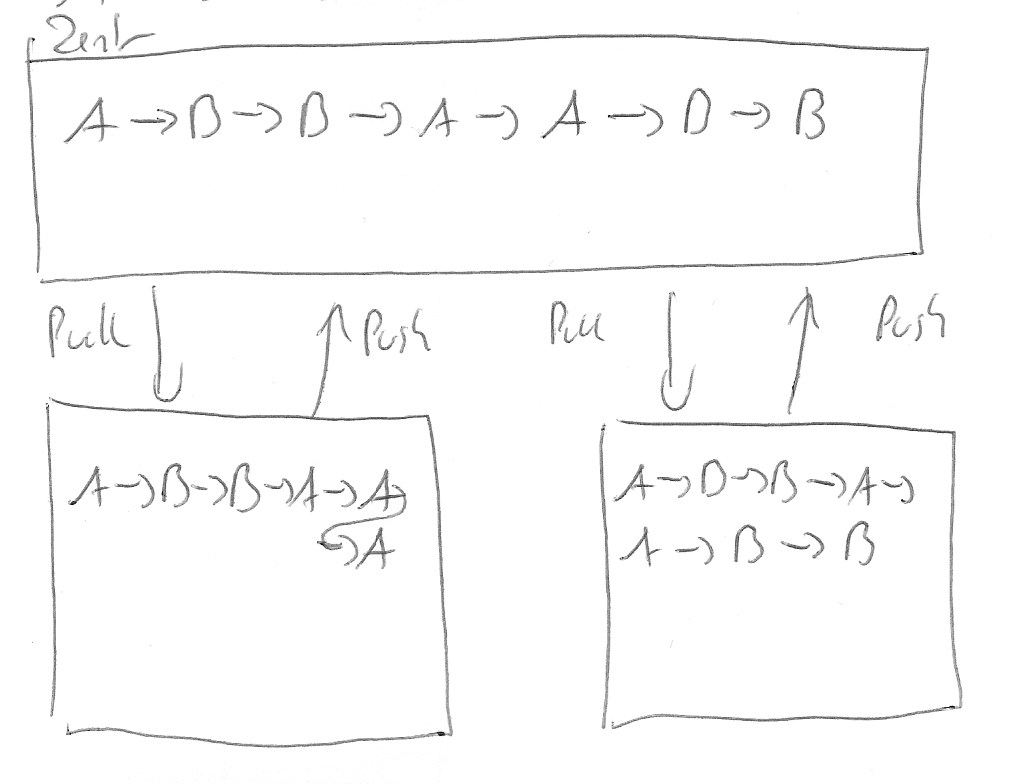 Zentr
A → B → B → A → A → B → B
Pull Push Pull Push
A → B → B → A → A
→ A
A → B → B → A →
A → B → B